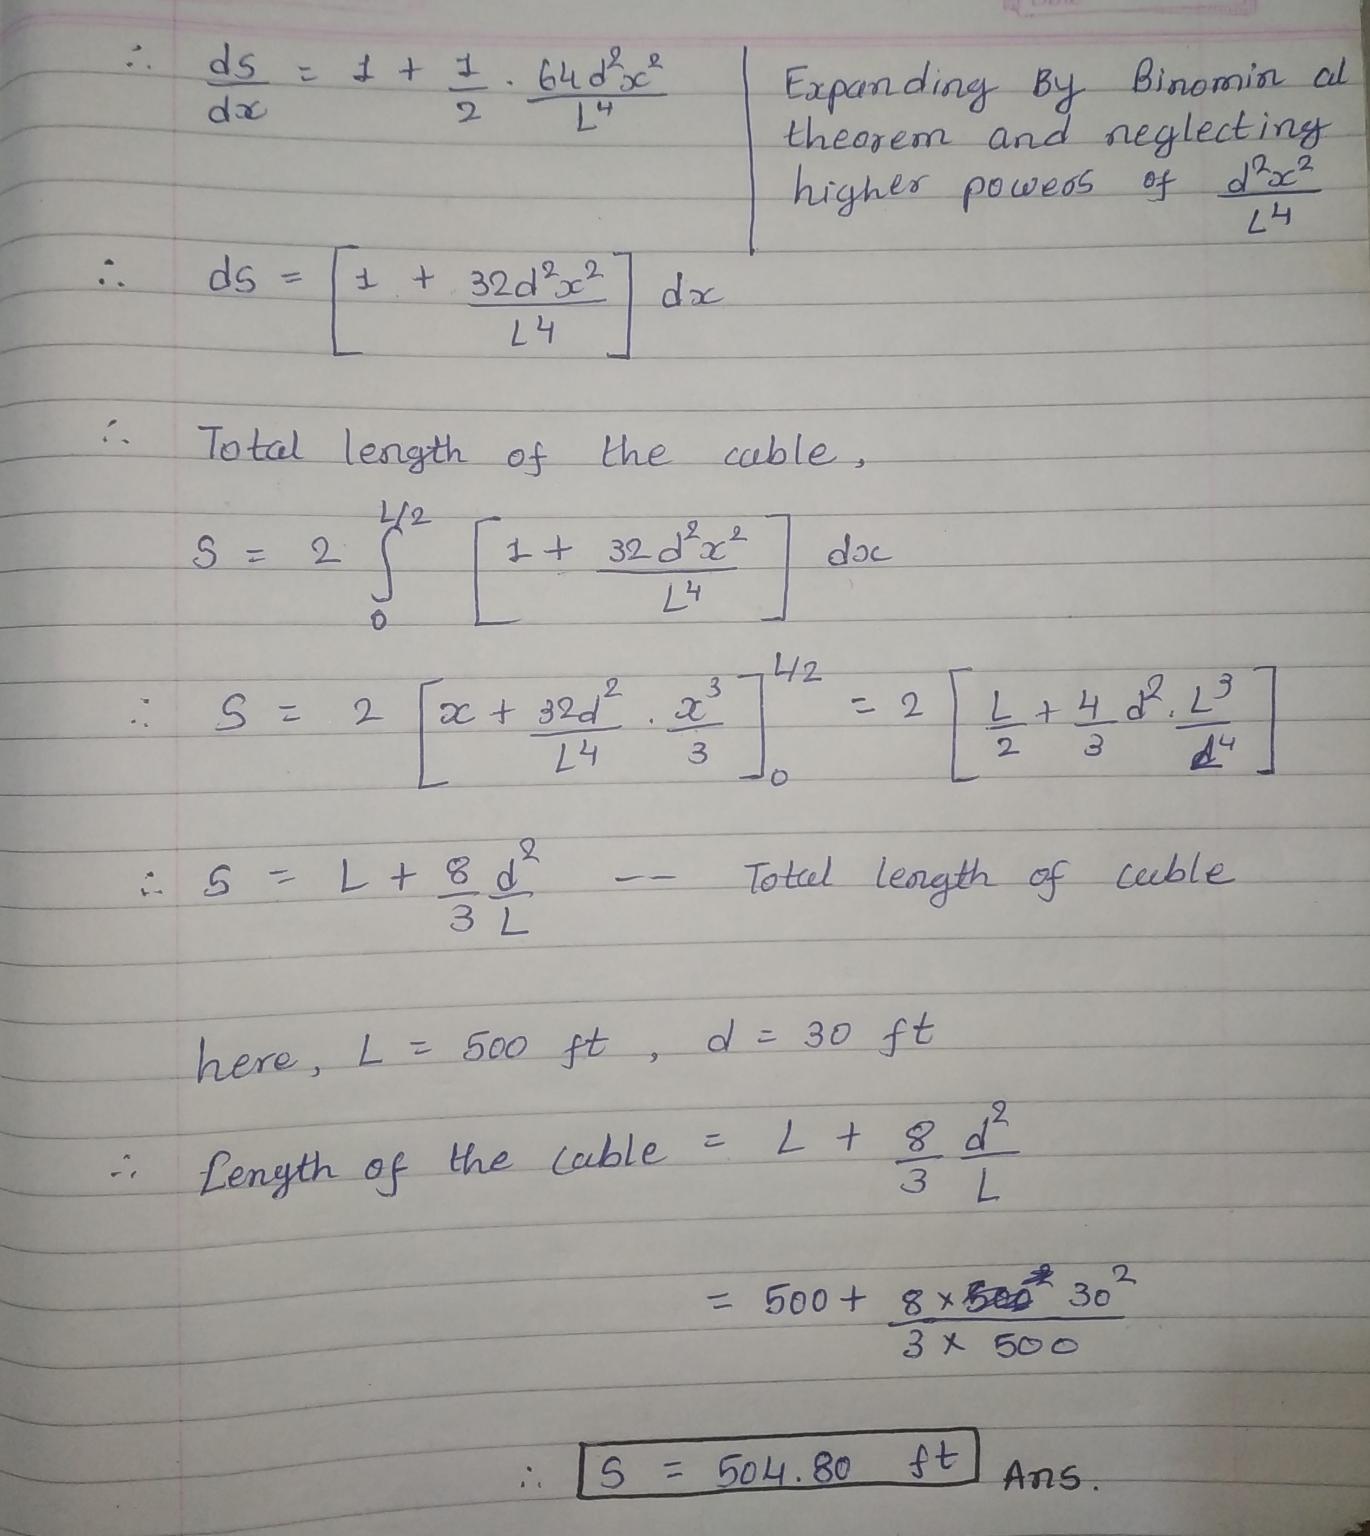 ∴ ds/dx = 1 + 1/2 . 64d²x²/L⁴
Expanding By Binomin al
theorem and neglecting
higher powers of d²x²/L⁴
∴ ds = [1 + 32d²x²/L⁴] dx
∴ Total length of the cable,
S = 2 ∫₀^(L/2) [1 + 32d²x²/L⁴] dx
∴ S = 2 [x + 32d²/L⁴ . x³/3]₀^(L/2) = 2 [L/2 + 4/3 d². L³/d⁴]
∴ S = L + 8/3 d²/L -- Total length of cable
here, L = 500 ft, d = 30 ft
∴ Length of the cable = L + 8/3 d²/L
= 500 + 8 × 30²/3 × 500
∴ S = 504.80 ft Ans.